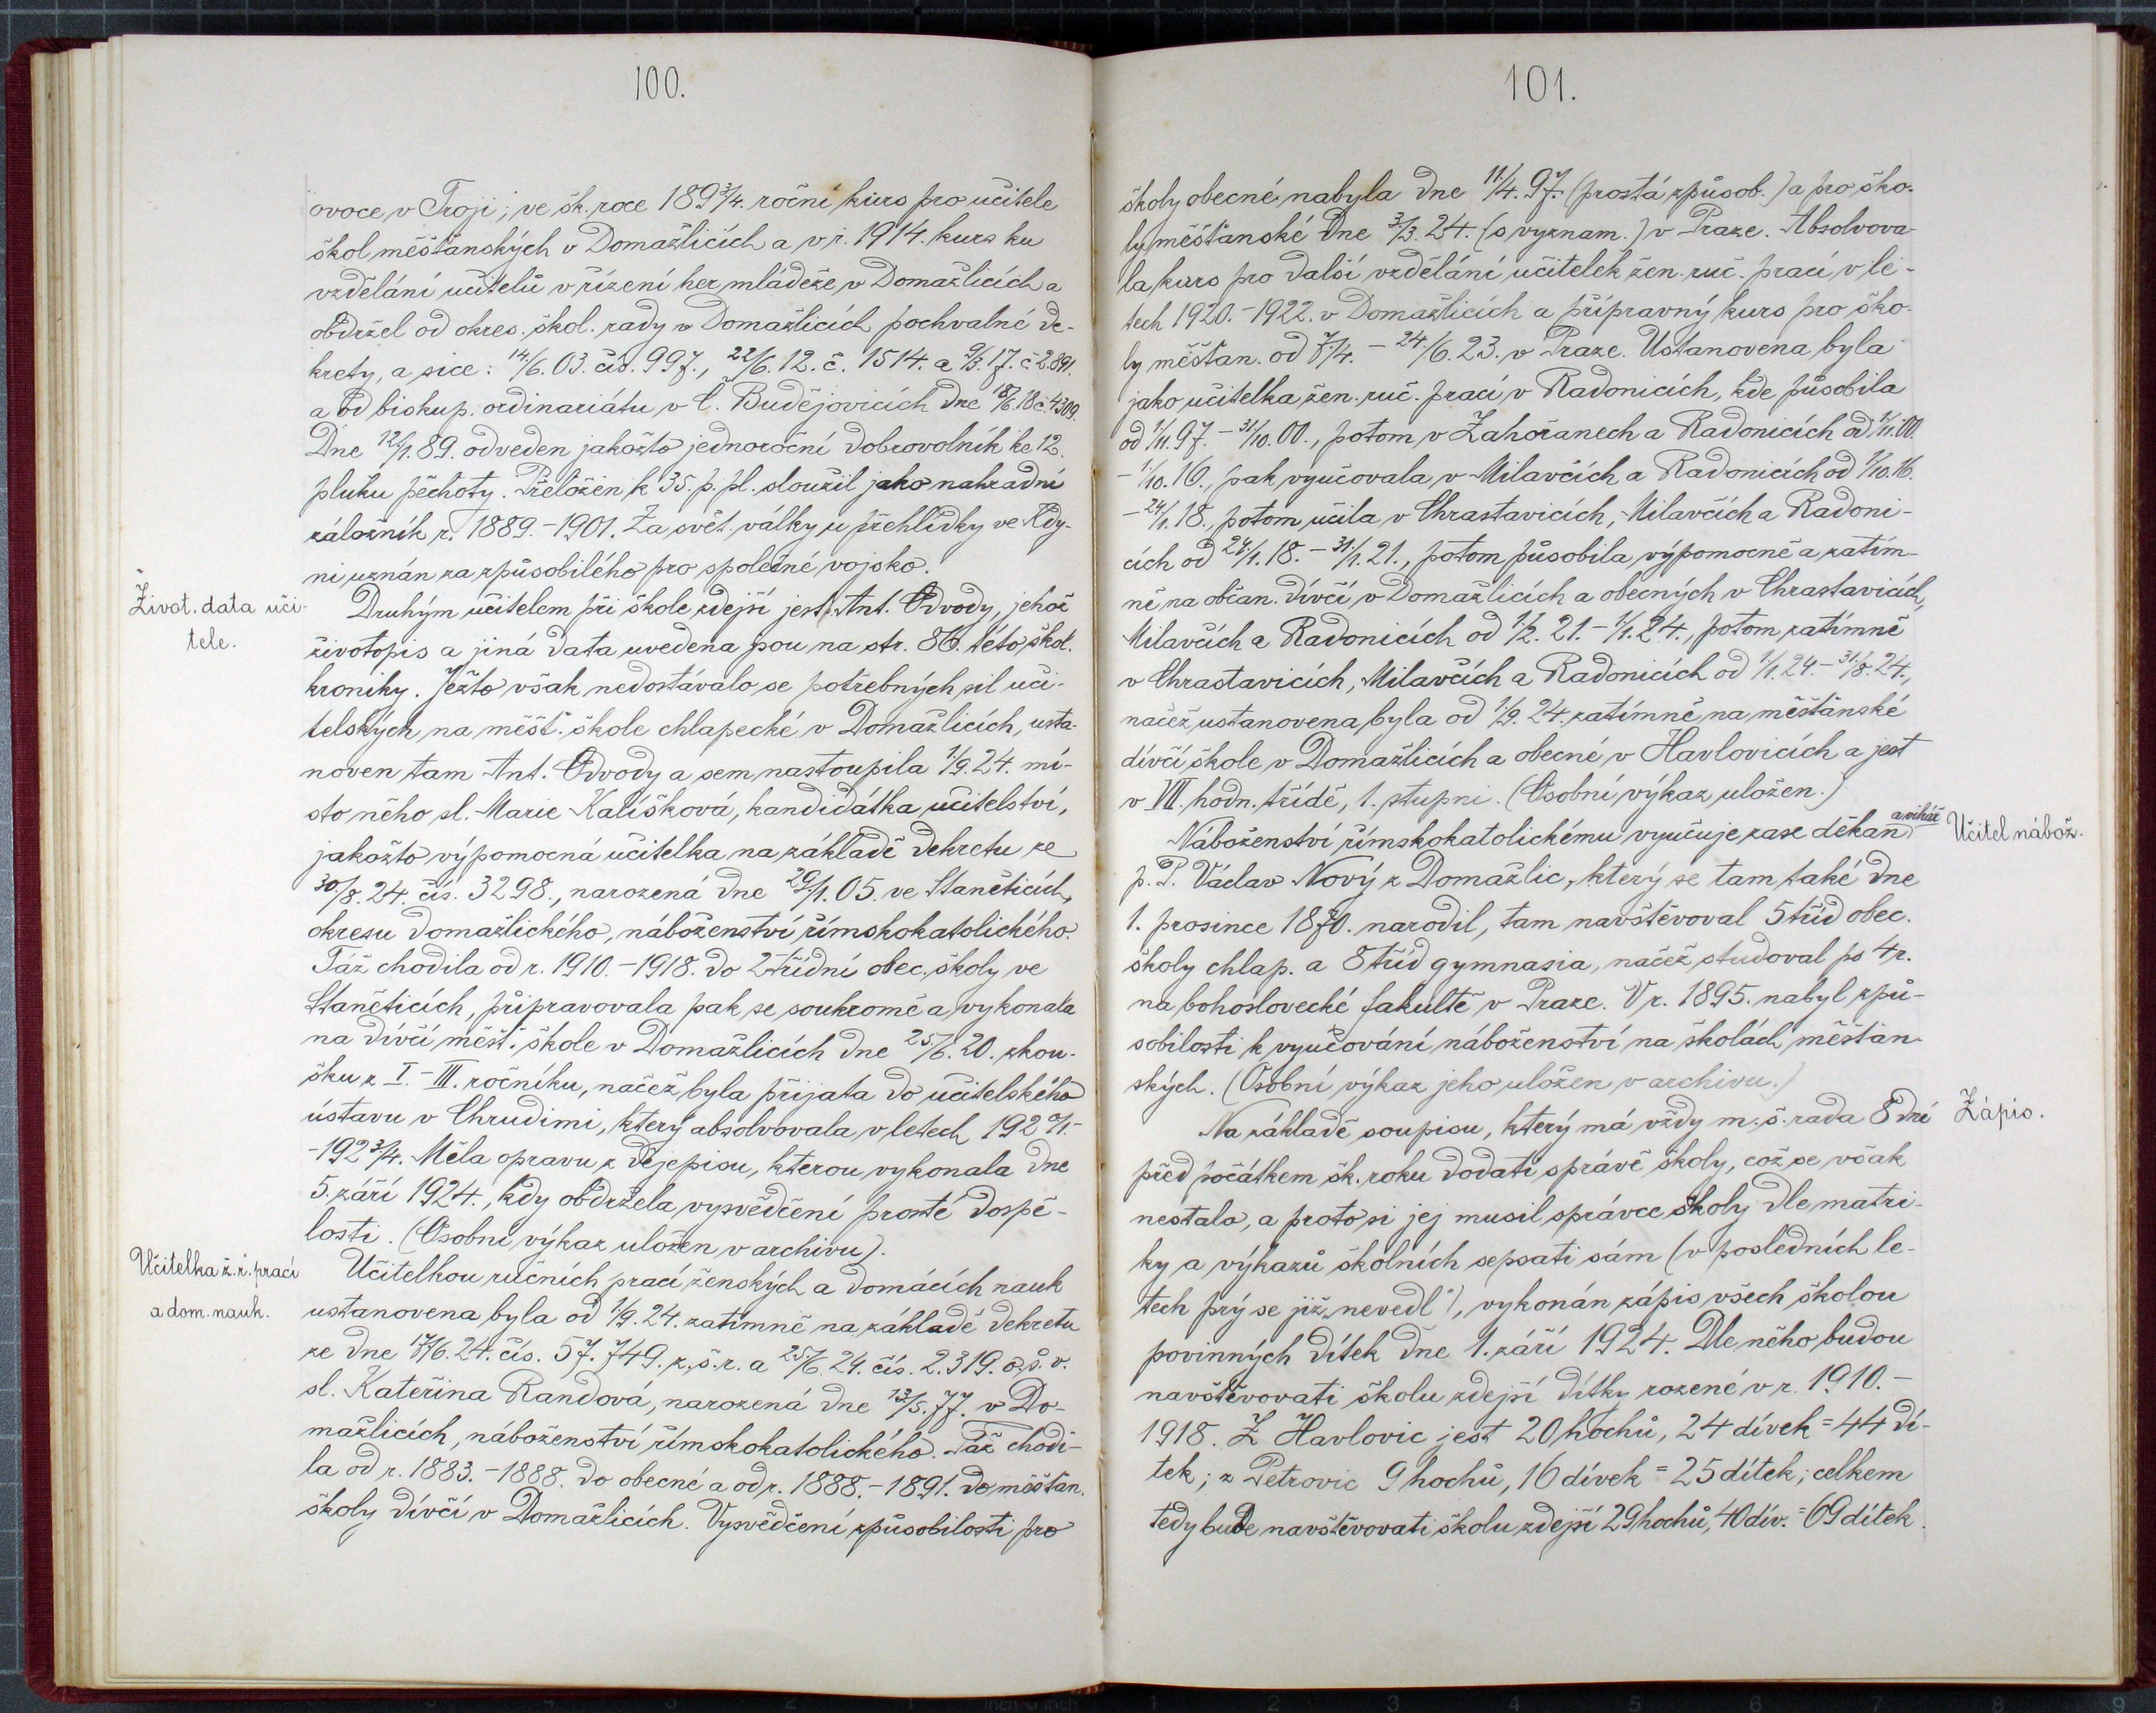 100.
ovoce v Troji; ve šk. roce 1893/4. roční kurs pro učitele
škol měšťanských v Domažlicích a v r. 1914. kurs ku
vzdělání učitelů v řízení her mládeže v Domažlicích a
obdržel od okres. škol. rady v Domažlicích pochvalné de-
krety, a sice: 14./6. 03. čís. 997., 22./6. 12. č. 1514. a 9./3. 17. č. 2.891.
a od biskup. ordinariátu v Č. Budějovicích dne 18./6. 18 č. 4309.
Dne 12./1. 89. odveden jakožto jednoroční dobrovolník ke 12.
pluku pěchoty. Přeložen k 35. p. pl. sloužil jako nahradní
záložník r. 1889.-1901. Za svět. války u přehlídky ve Kdy-
ni uznán za způsobilého pro společné vojsko.
Život. data uči-
tele.
Druhým učitelem při škole zdejší jest Ant. Odvody, jehož
životopis a jiná data uvedena jsou na str. 86. této škol.
kroniky. Ježto však nedostávalo se potřebných sil uči-
telských na měšť. škole chlapecké v Domažlicích, usta-
noven tam Ant. Odvody a sem nastoupila 1./9. 24. mí-
sto něho sl. Marie Kalíšková, kandidátka učitelství,
jakožto výpomocná učitelka na základě dekretu ze
30./8. 24. čís. 3298., narozená dne 29./1. 05. ve Staněticích,
okresu domažlického, náboženství římskokatolického.
Táž chodila od r. 1910.-1918. do 2třídní obec. školy ve
Staněticích, připravovala pak se soukromě a vykonala
na dívčí měšť. škole v Domažlicích dne 25./6. 20. zkou-
šku z I.-III. ročníku, načež byla přijata do učitelského
ústavu v Chrudimi, který absolvovala v letech 1920/1.-
-1923/4. Měla opravu z dějepisu, kterou vykonala dne
5. září 1924., kdy obdržela vysvědčení prosté dospě-
losti. (Osobní výkaz uložen v archivu).
Učitelka ž. r. prací
a dom. nauk.
Učitelkou ručních prací ženských a domácích nauk
ustanovena byla od 1./9. 24. zatímně na základě dekretu
ze dne 17./6. 24. čís. 57.749. z. š. r. a 25./6. 24. čís. 2.319. o. š. v.
sl. Kateřina Randová, narozená dne 13./5. 77. v Do-
mažlicích, náboženství římskokatolického. Táž chodi-
la od r. 1883.-1888. do obecné a od r. 1888.-1891. do měšťan.
školy dívčí v Domažlicích. Vysvědčení způsobilosti pro
101.
školy obecné nabyla dne 11./4. 97. (prostá způsob.) a pro ško-
ly měšťanské dne 3./3. 24. (s vyznam.) v Praze. Absolvova-
la kurs pro další vzdělání učitelek žen. ruč. prací v le-
tech 1920.-1922. v Domažlicích a přípravný kurs pro ško-
ly měšťan. od 7./4. - 24./6. 23. v Praze. Ustanovena byla
jako učitelka žen. ruč. prací v Radonicích, kde působila
od 1./11. 97. - 31./10. 00., potom v Zahořanech a Radonicích od 1./11. 00.
- 1./10. 16., pak vyučovala v Milavčích a Radonicích od 1./10. 16.
- 24./1. 18., potom učila v Chrastavicích, Milavčích a Radoni-
cích od 24./1. 18. - 31./1. 21., potom působila výpomocně a zatím-
ně na občan. dívčí v Domažlicích a obecných v Chrastavicích,
Milavčích a Radonicích od 1./2. 21. - 1./1. 24., potom zatímně
v Chrastavicích, Milavčích a Radonicích od 1./1. 24. - 31./8. 24.,
načež ustanovena byla od 1./9. 24. zatímně na měšťanské
dívčí škole v Domažlicích a obecné v Havlovicích a jest
v VII. hodn. třídě, 1. stupni. (Osobní výkaz uložen.)
Učitel nábož.
Náboženství římskokatolickému vyučuje zase děkan a vikář
p. P. Václav Nový z Domažlic, který se tam také dne
1. prosince 1870. narodil, tam navštěvoval 5 tříd obec.
školy chlap. a 8 tříd gymnasia, načež studoval po 4 r.
na bohoslovecké fakultě v Praze. V r. 1895. nabyl způ-
sobilosti k vyučování náboženství na školách měšťan-
ských. (Osobní výkaz jeho uložen v archivu.)
Zápis.
Na základě soupisu, který má vždy m. š. rada 8 dní
před počátkem šk. roku dodati správě školy, což se však
nestalo, a proto si jej musil správce školy dle matri-
ky a výkazů školních sepsati sám (v posledních le-
tech prý se již „nevedl“), vykonán zápis všech školou
povinných dítek dne 1. září 1924. Dle něho budou
navštěvovati školu zdejší dítky rozené v r. 1910.-
1918. Z Havlovic jest 20 hochů, 24 dívek = 44 dí-
tek; z Petrovic 9 hochů, 16 dívek = 25 dítek; celkem
tedy bude navštěvovati školu zdejší 29 hochů, 40 dív. = 69 dítek.